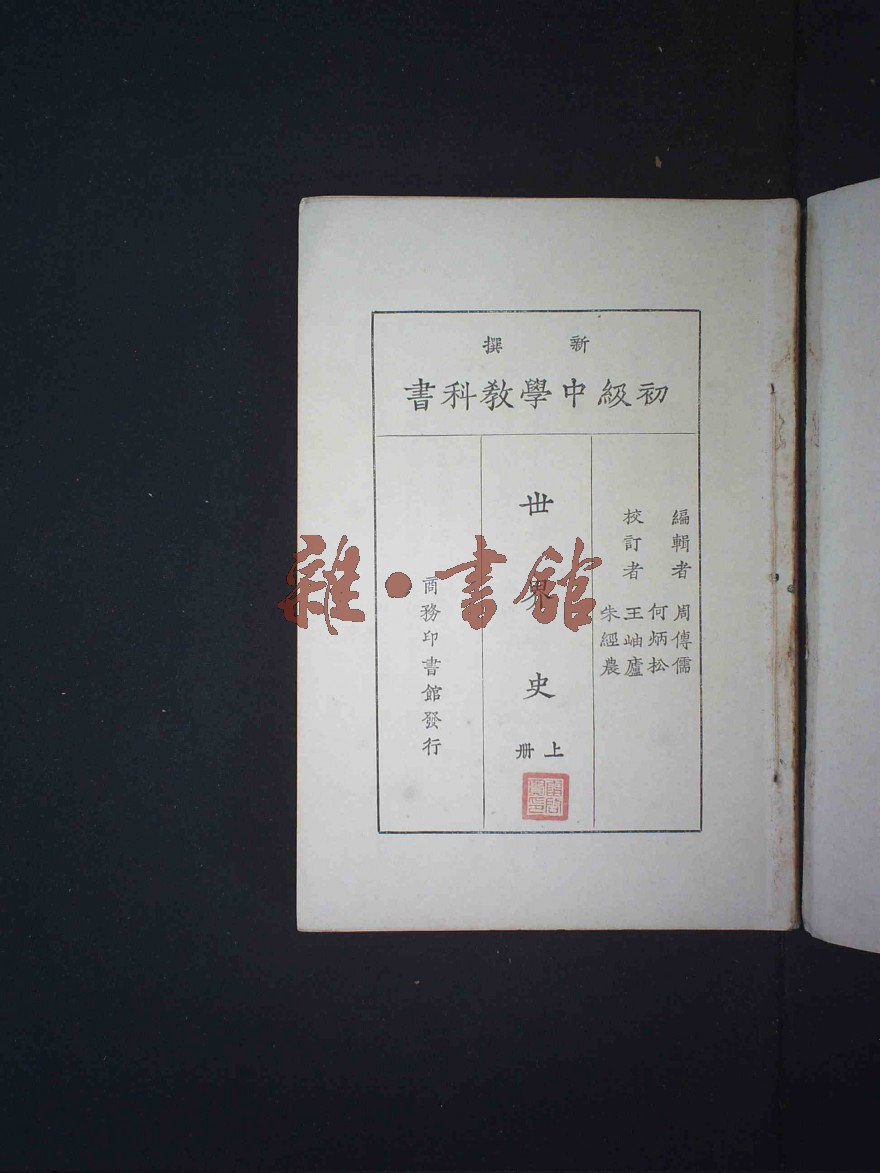 新撰
初級中學教科書
編輯者 周傳儒
何炳松
校訂者 王岫廬
朱經農
世界史
上册
商務印書館發行
雜·書館